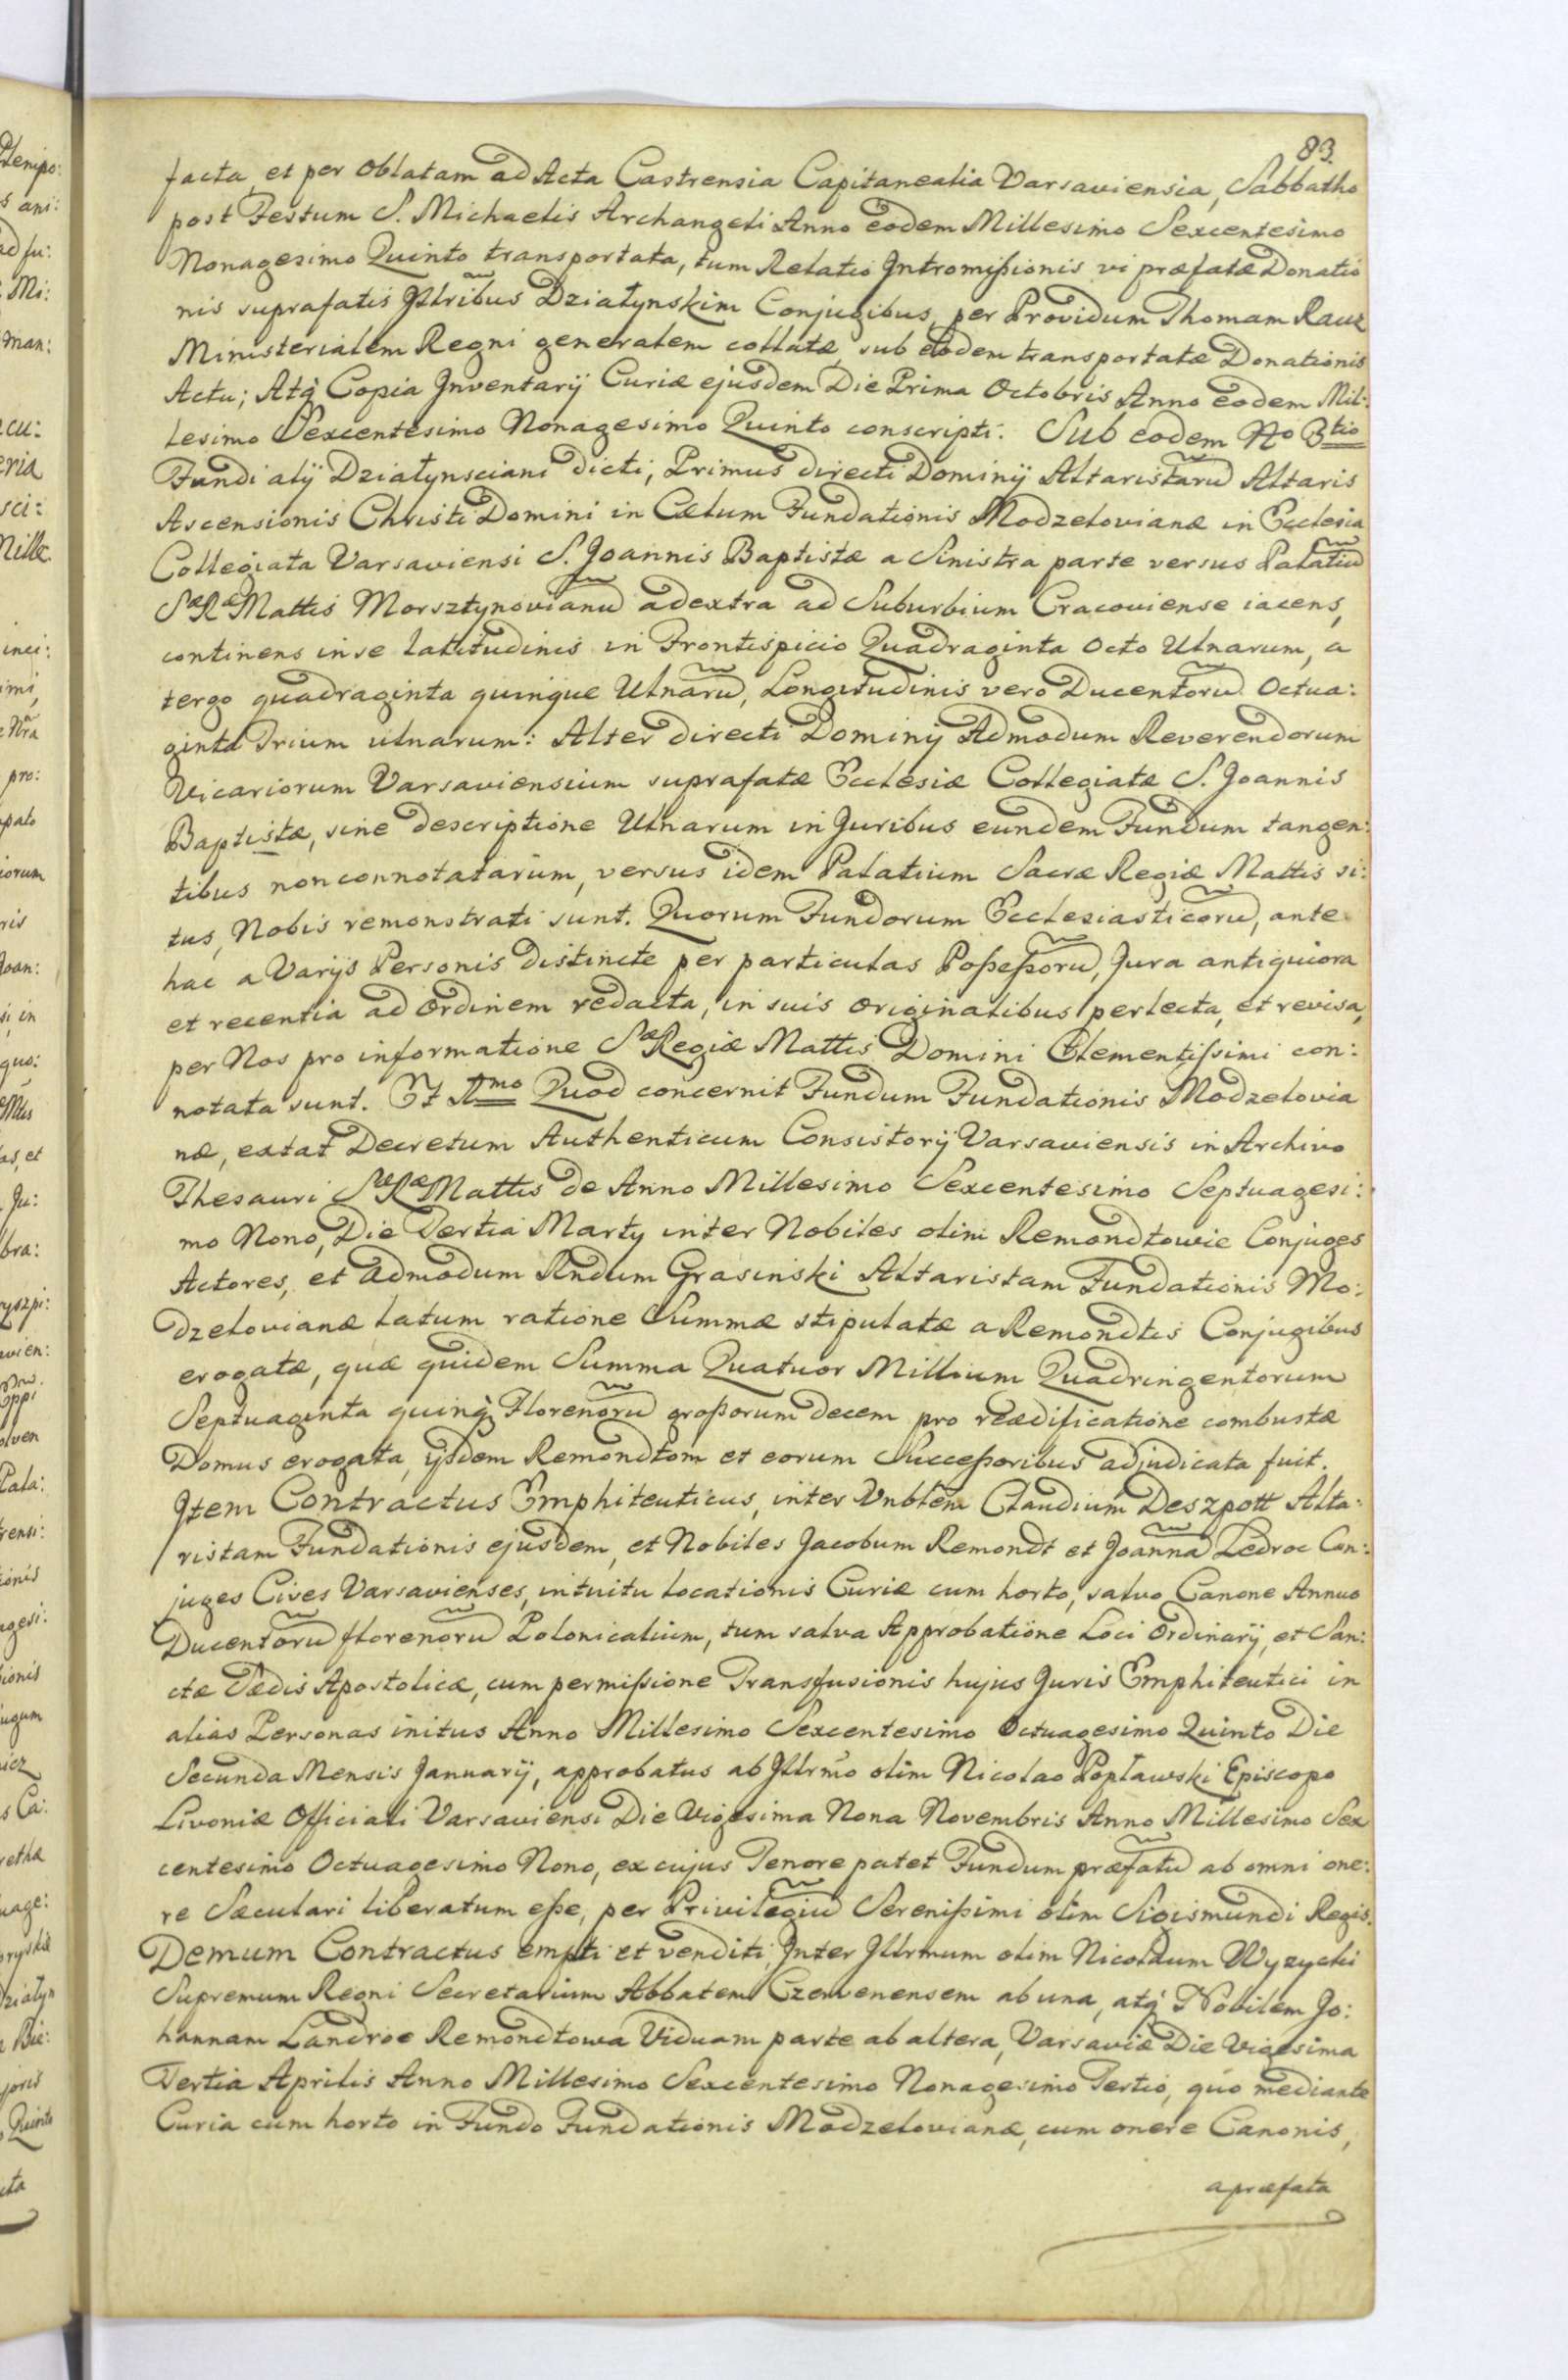 83.
facta et per Oblatam ad Acta Castrensia Capitanealia Varsaviensia, Sabbatho
post Festum S. Michaelis Archangeli Anno eodem Millesimo Sexcentesimo
Nonagesimo Quinto transportata, tum Relatio Intromißionis vi præfatæ Donatio
nis suprafatis Illribus Działynskim Conjugibus, per Providum Thomam Rauz
Ministerialem Regni generalem collatæ, sub eodem transportatæ Donationis
Actu; Atq Copia Inventarÿ Curiæ ejusdem Die Prima Octobris Anno eodem Mil:
lesimo Sexcentesimo Nonagesimo Quinto conscripti. Sub eodem No 3tio
Fundi alÿ Działynsciani dicti, Primus directi Dominÿ Altaristarũ Altaris
Ascensionis Christi Domini in Cælum Fundationis Modzelovianæ in Ecclesia
Collegiata Varsaviensi S. Joannis Baptistæ a Sinistra parte versus Palatiũ
Sæ Ræ Mattis Morsztynovianũ adextra ad Suburbium Cracoviense iacens,
continens in se latitudinis in Frontispicio Quadraginta Octo Ulnarum, a
tergo quadraginta quinque Ulnarũ, Longitudinis vero Ducentorũ Octua:
ginta Trium ulnarum: Alter directi Dominÿ Admodum Reverendorum
Vicariorum Varsaviensium suprafatæ Ecclesiæ Collegiatæ S. Joannis
Baptistæ, sine descriptione Ulnarum in Juribus eundem Fundum tangen:
tibus nonconnotatarum, versus idem Palatium Sacræ Regiæ Mattis si:
tus, Nobis remonstrati sunt. Quorum Fundorum Ecclesiasticorũ, ante
hac a Varÿs Personis distincte per particulas Poßeßorũ, Jura antiquiora
et recentia ad Ordinem redacta, in suis originalibus perlecta, et revisa,
per Nos pro informatione Sæ Regiæ Mattis Domini Clementißimi con:
notata sunt. Et Imo Quod concernit Fundum Fundationis Modzelovia
næ, extat Decretum Authenticum Consistorÿ Varsaviensis in Archivo
Thesauri Sæ Ræ Mattis de Anno Millesimo Sexcentesimo Septuagesi:
mo Nono, Die Tertia Martÿ inter Nobiles olim Remondtowie Conjuges
Actores, et admodum Rndum Grasinski Altaristam Fundationis Mo:
dzelovianæ latum ratione Summæ stipulatæ a Remondtis Conjugibus
erogatæ, quæ quidem Summa Quatuor Millium Quadringentorum
Septuaginta quinq Florenorũ großorum decem pro reædificatione combustæ
Domus erogata, ÿsdem Remondtom et eorum Succeßoribus adjudicata fuit.
Item Contractus Emphiteuticus, inter Vnblem Claudium Deszpott Alta:
ristam Fundationis ejusdem, et Nobiles Jacobum Remondt et Joannã Ledroe Con:
juges Cives Varsavienses, intuitu Locationis Curiæ cum horto, salvo Canone Annuo
Ducentorũ florenorũ Polonicalium, tum salva Approbatione Loci Ordinarÿ, et San:
ctæ Sædis Apostolicæ, cum permißione Transfusionis hujus Juris Emphiteutici in
alias Personas initus Anno Millesimo Sexcentesimo Octuagesimo Quinto Die
Secunda Mensis Januarÿ, approbatus ab Illrmo olim Nicolao Popławski Episcopo
Livoniæ Officiali Varsaviensi Die Vigesima Nona Novembris Anno Millesimo Sex
centesimo Octuagesimo Nono, ex cujus Tenore patet Fundum præfatũ ab omni one:
re Sæculari liberatum eße, per Privilegiũ Serenißimi olim Sigismundi Regis.
Demum Contractus empti et venditi, Inter Illrmum olim Nicolaum Wyzycki
Supremum Regni Secretarium Abbatem Czerwenensem ab una, atq Nobilem Jo:
hannam Landroe Remondtowa Viduam parte ab altera, Varsaviæ Die Vigesima
Tertia Aprilis Anno Millesimo Sexcentesimo Nonagesimo Tertio, quo mediante
Curia cum horto in Fundo Fundationis Modzelovianæ, cum onere Canonis,
apræfata